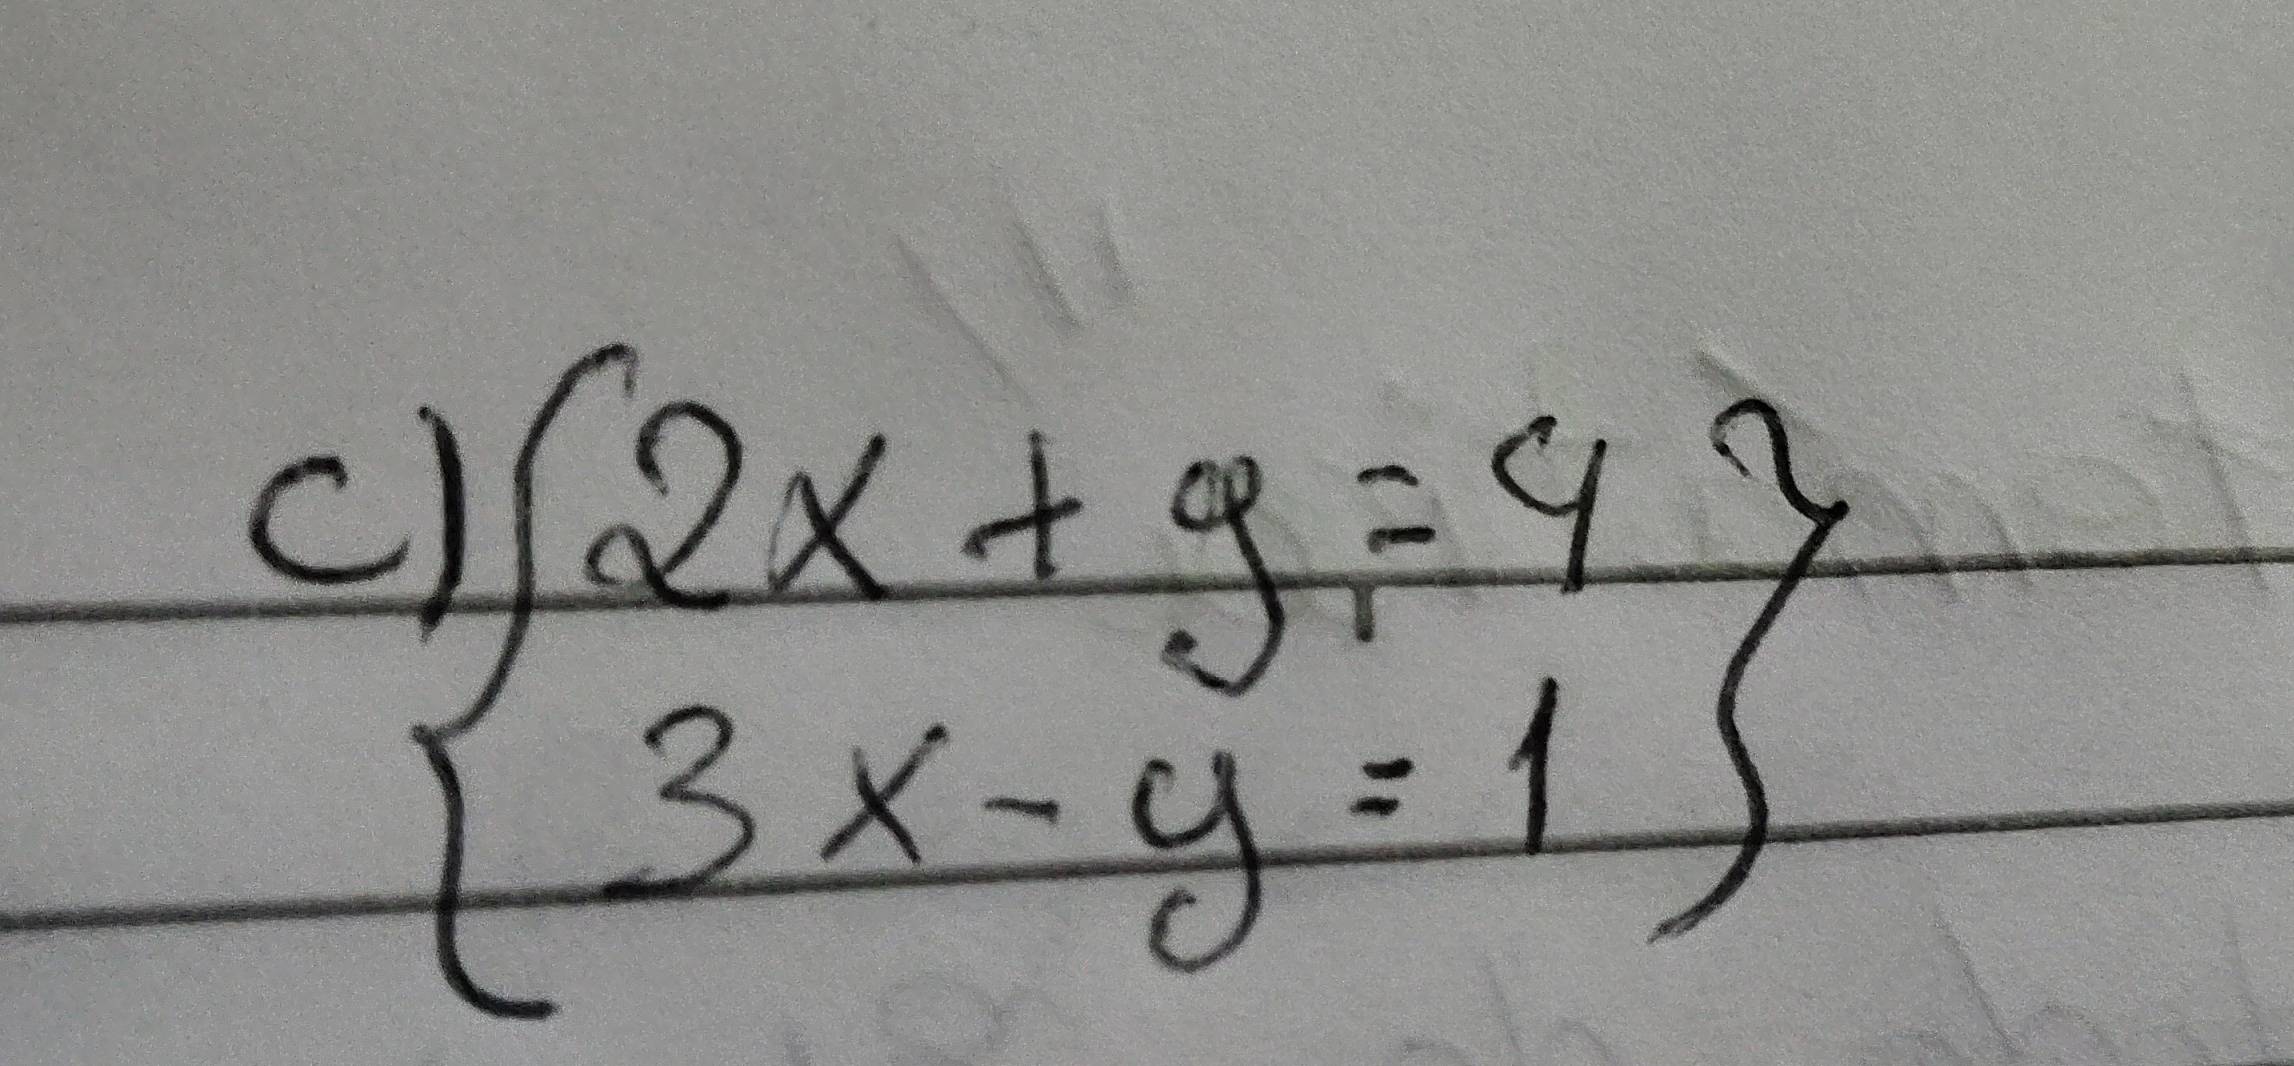 c) { 2x + y = 4 }
3x - y = 1